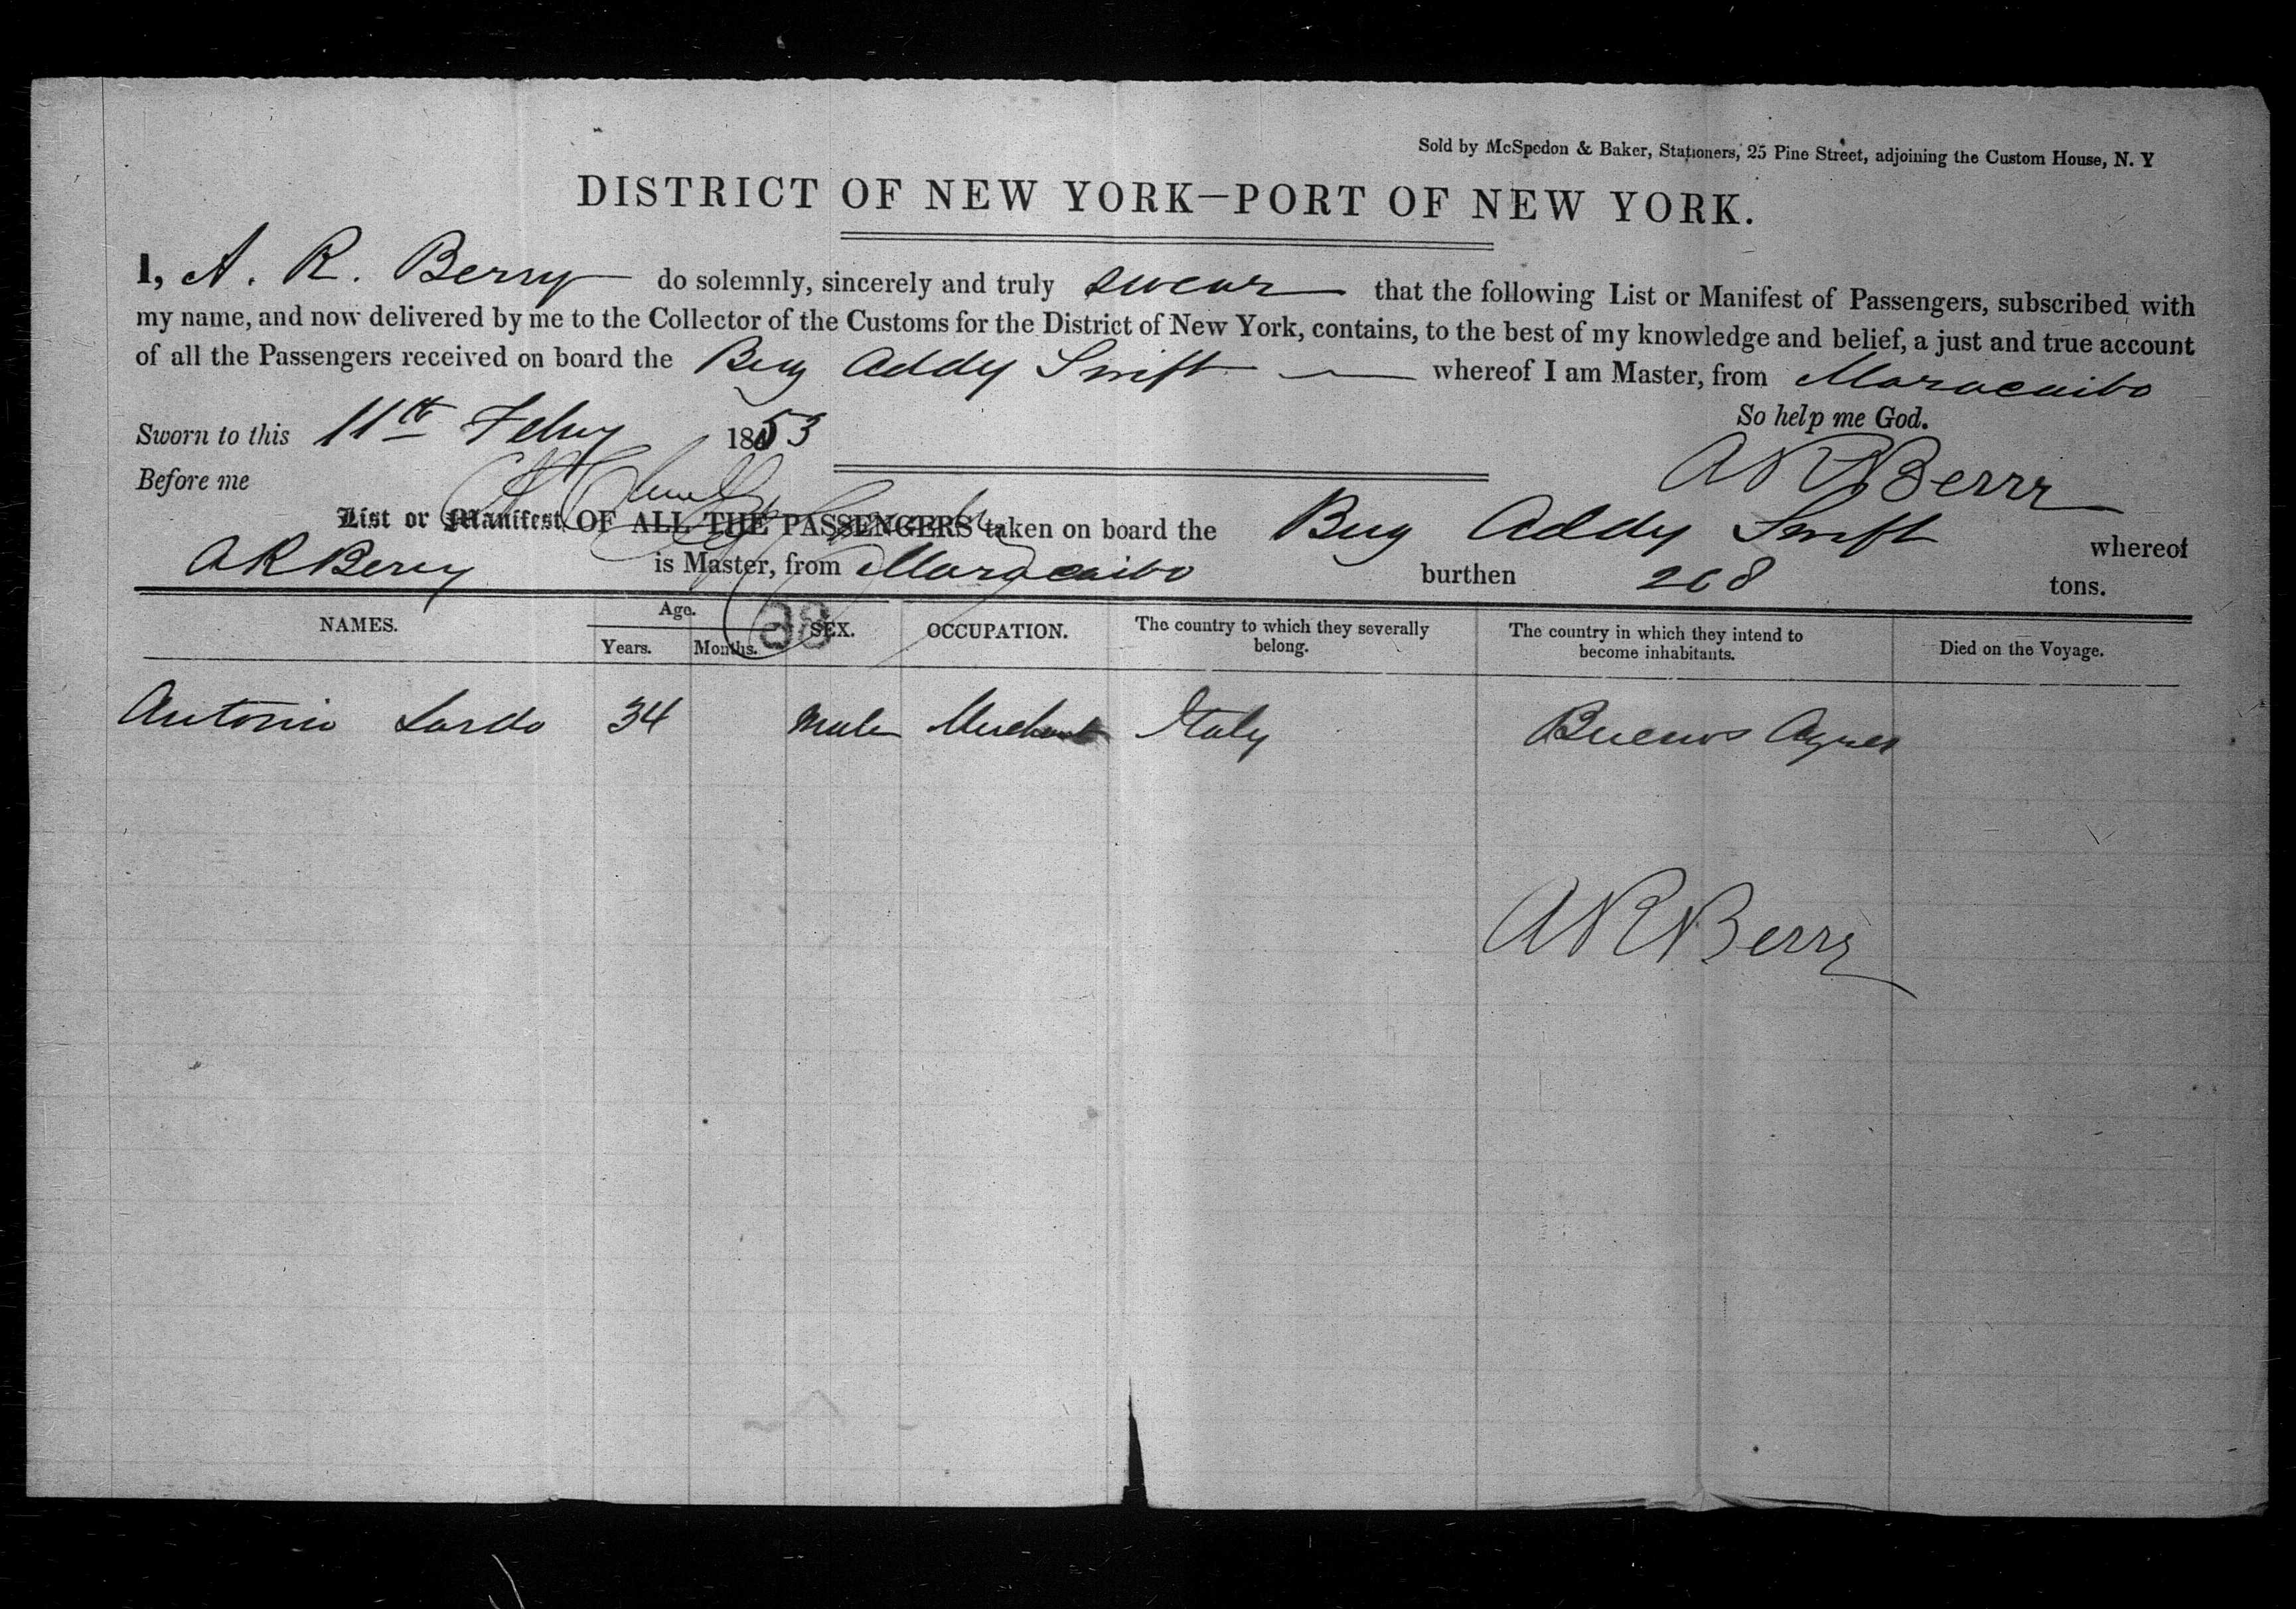 Sold by McSpedon & Baker, Stationers, 25 Pine Street, adjoining the Custom House, N. Y
DISTRICT OF NEW YORK—PORT OF NEW YORK.
I, A. R. Berry do solemnly, sincerely and truly swear that the following List or Manifest of Passengers, subscribed with
my name, and now delivered by me to the Collector of the Customs for the District of New York, contains, to the best of my knowledge and belief, a just and true account
of all the Passengers received on board the Brig Addy Swift whereof I am Master, from Maracaibo
So help me God.
Sworn to this 11th Feby 1853
A R Berry
Before me
List or Manifest OF ALL THE PASSENGERS taken on board the Brig Addy Swift whereof
A R Berry is Master, from Maracaibo burthen 268 tons.
38
NAMES. Age. Years. Months. SEX. OCCUPATION. The country to which they severally belong. The country in which they intend to become inhabitants. Died on the Voyage.
Antonio Lardo 34 Male Merchant Italy Buenos Ayres
A R Berry